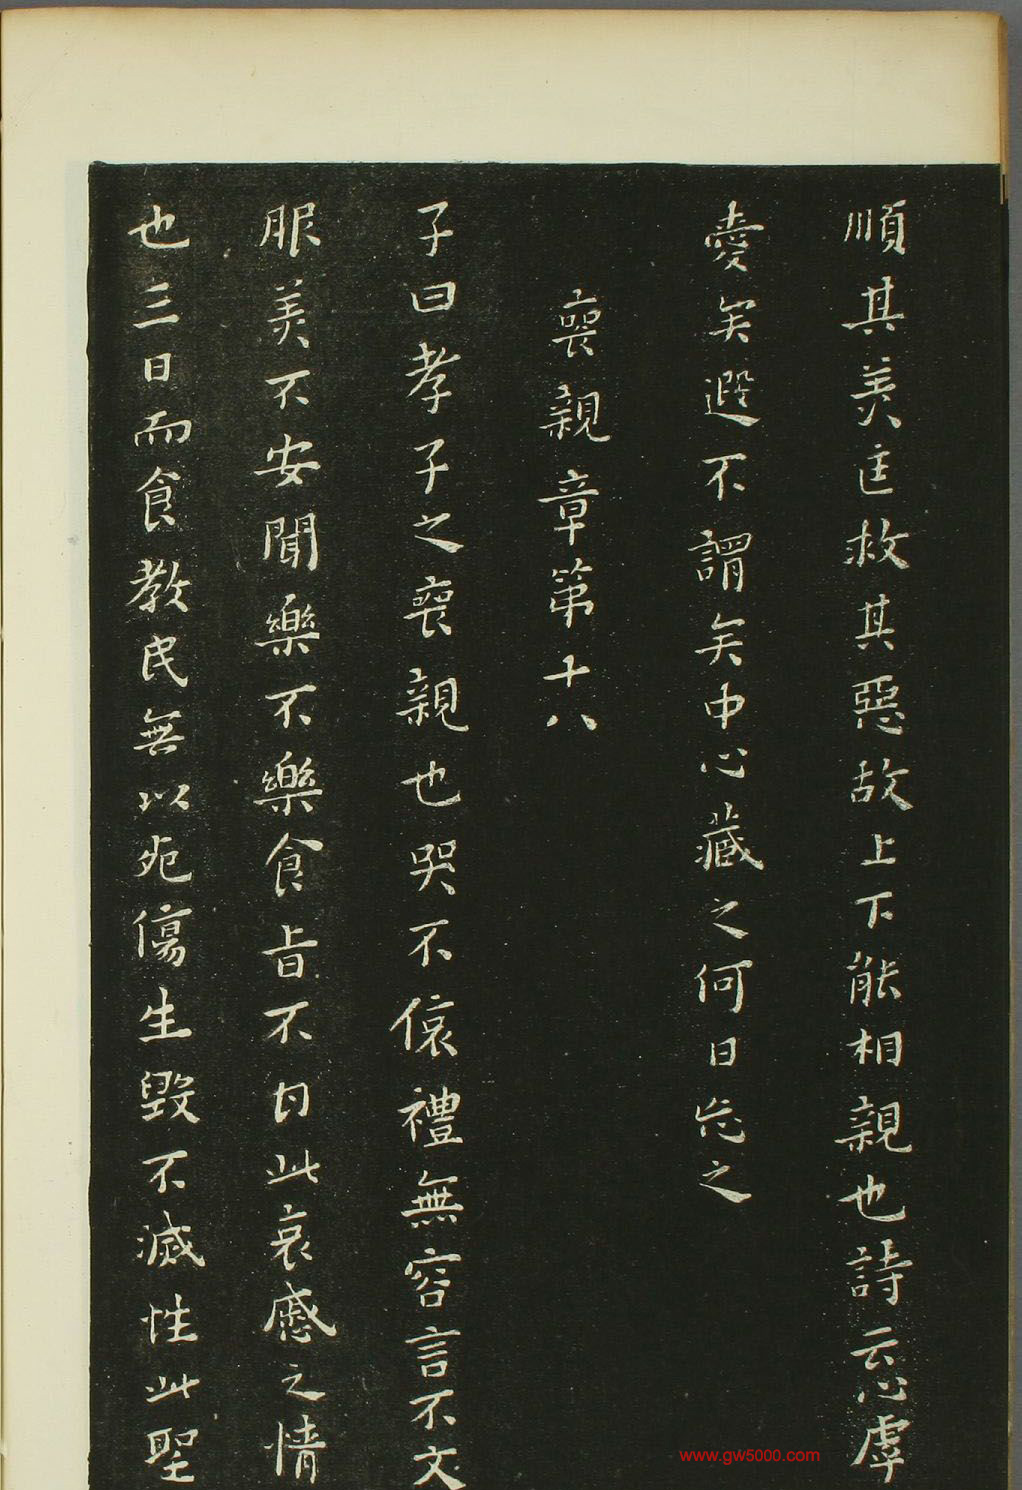 順其美匡救其惡故上下能相親也詩云心虖
愛矣遐不謂矣中心藏之何日忘之
喪親章第十八
子曰孝子之喪親也哭不偯禮無容言不文
服美不安聞樂不樂食旨不甘此哀慼之情
也三日而食教民無以死傷生毀不滅性此聖
www.gw5000.com